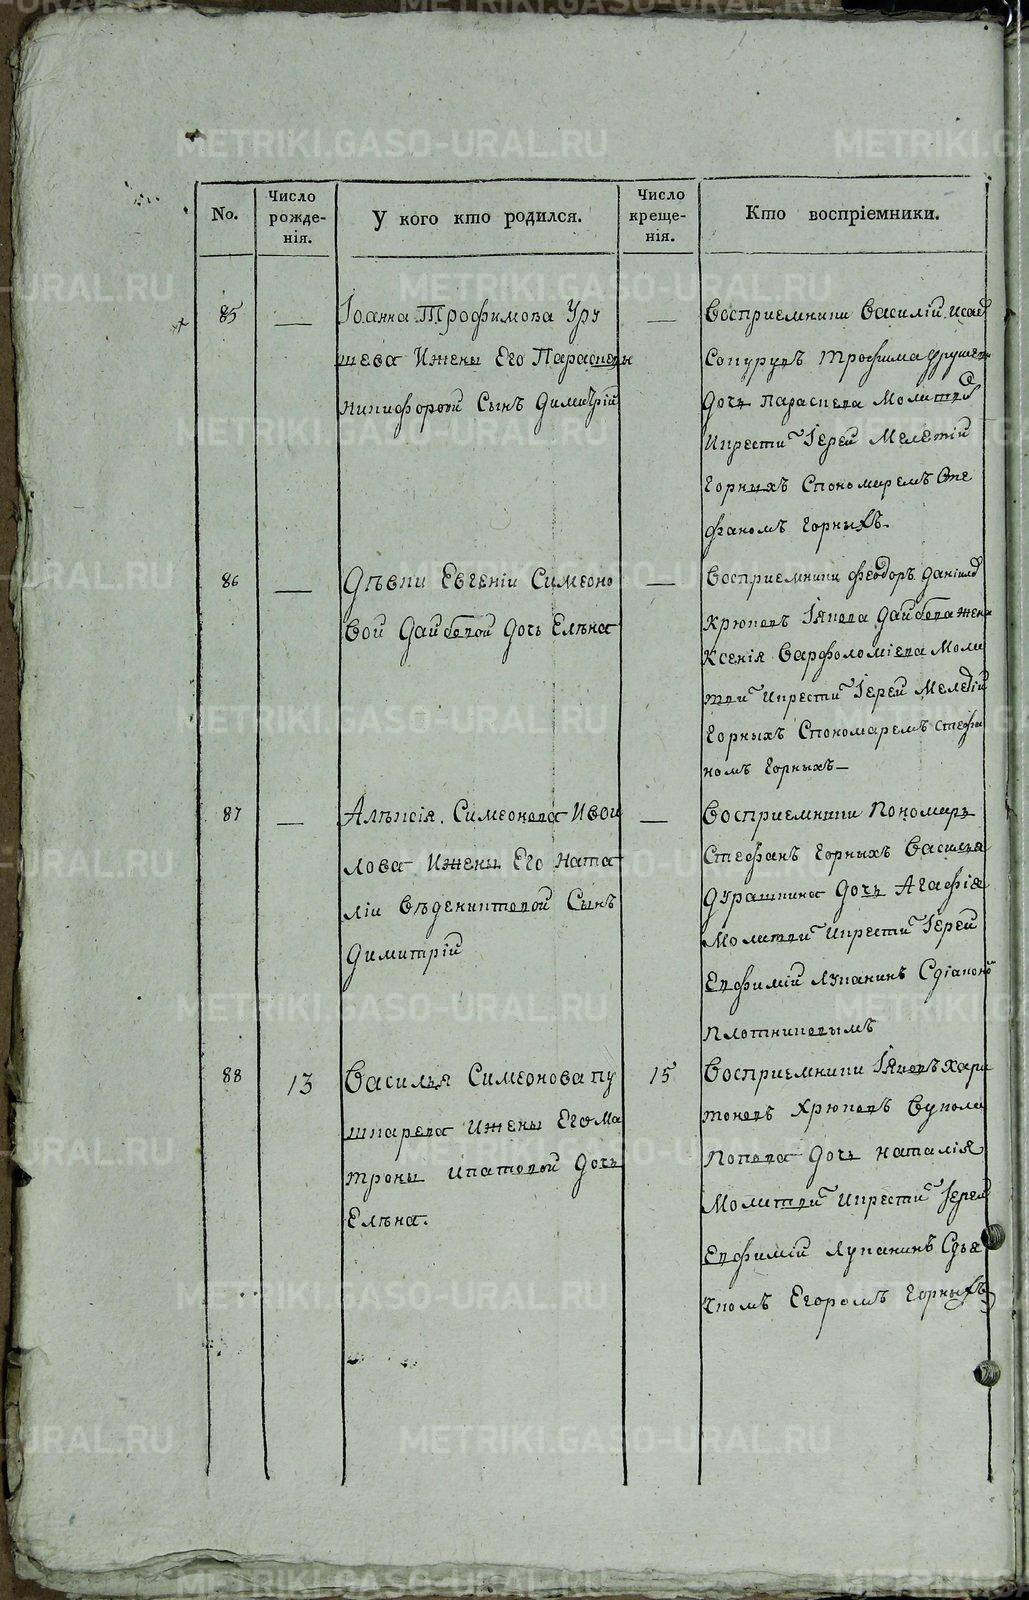 No.
Число рожде-нія.
У кого кто родился.
Число креще-нія.
Кто воспріемники.
85
—
Іоанна Трофимова Уру
шева Ижены Его Параскевы
Никифоровой Сынъ Димитрій
—
Восприемники Василій Исаев
Трофима
дочь Параскева Молитв
Икрести Іерей Мелетій
Горныхъ Спономаремъ Сте
фаномъ Горныхъ.
86
—
Дѣвки Евгеніи Симеоно
вой Дочь Елѣна
—
Восприемники Феодоръ Даніилов
Крюковъ Іякова жена
Ксенія Варфоломіева Моли
тви Икрести Іерей Мелетій
Горныхъ Спономаремъ Стефа
номъ Горныхъ—
87
—
Алѣксія Симеонова Ивои
лова Ижены Его Ната
ліи Веденихтовой Сынъ
Димитрій
—
Восприемники Пономарь
Стефанъ Горныхъ Василья
Дочь Агафія
Молитви Икрести Іерей
Евфимій Лукапинъ Сдіакон
Плотниковымъ
88
13
Василья Симеонова Пу
шкарева Ижены Его Ма
троны Ипатовой Дочь
Елѣна.
15
Восприемники Іяковъ Хари
тоновъ Крюковъ Вукола
Попова Дочь Наталія
Молитви Икрести Іерей
Евфимій Сдья
чкомъ Егоромъ Горныхъ